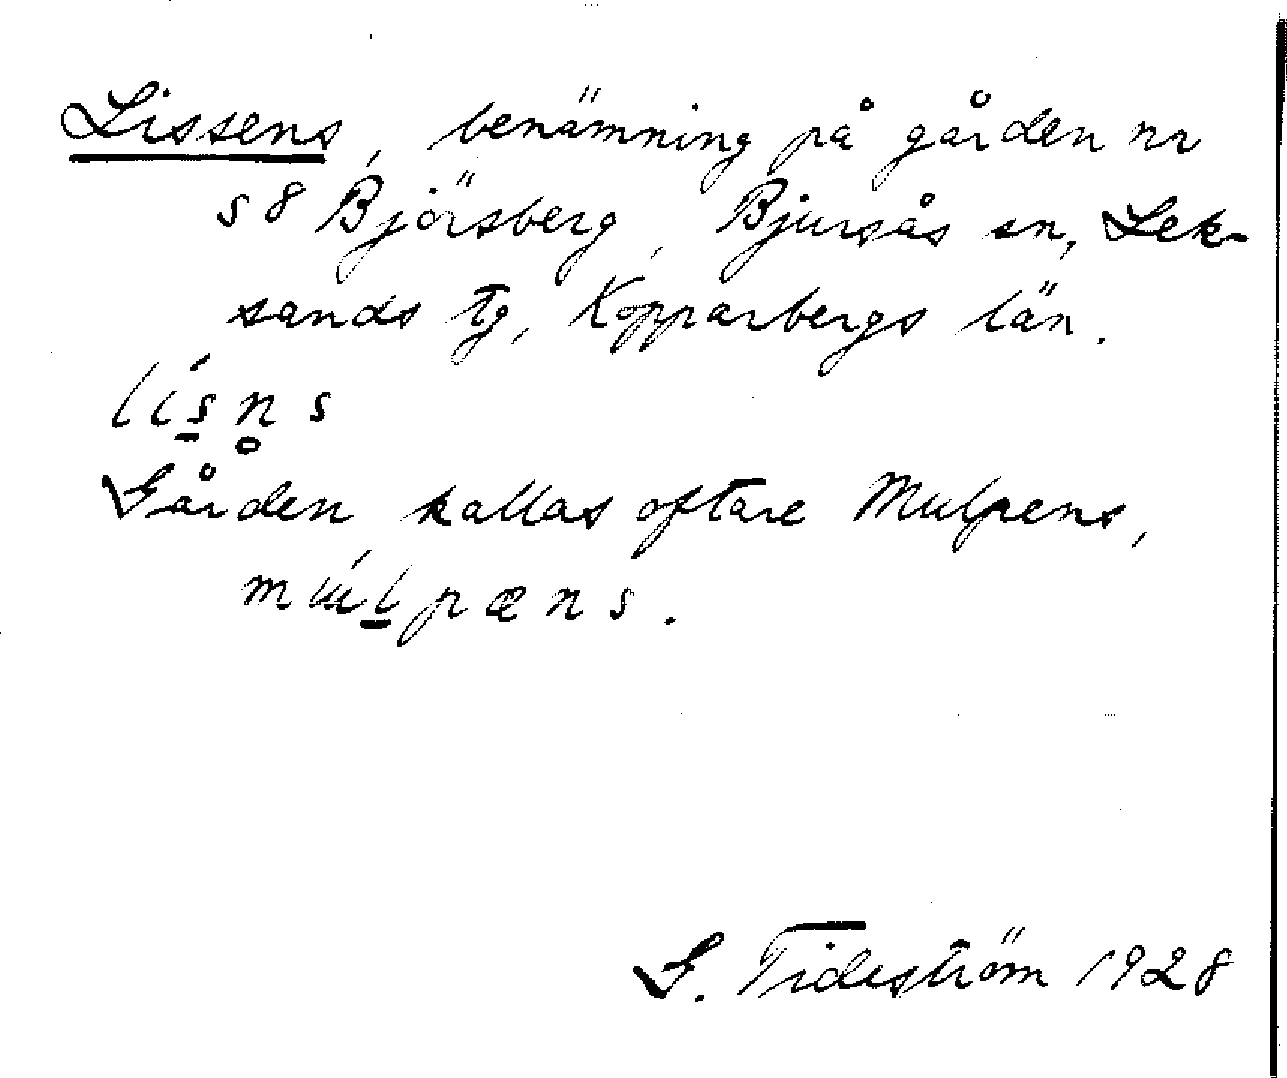 Lissens, benämning på gården nr
58 Björsberg, Bjursås sn, Lek-
sands tg, Kopparbergs län.
lís̲n̥s
Gården kallas oftare Mulpens,
múl̲pæns.
G. Tideström 1928